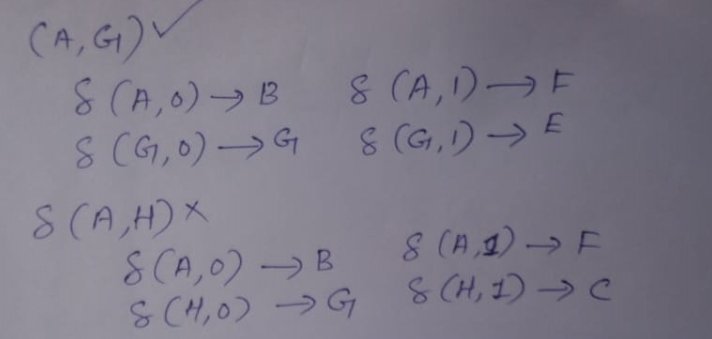 (A, G) ✓
δ (A, 0) → B δ (A, 1) → F
δ (G, 0) → G δ (G, 1) → E
δ (A, H) ×
δ (A, 0) → B δ (A, 1) → F
δ (H, 0) → G δ (H, 1) → C